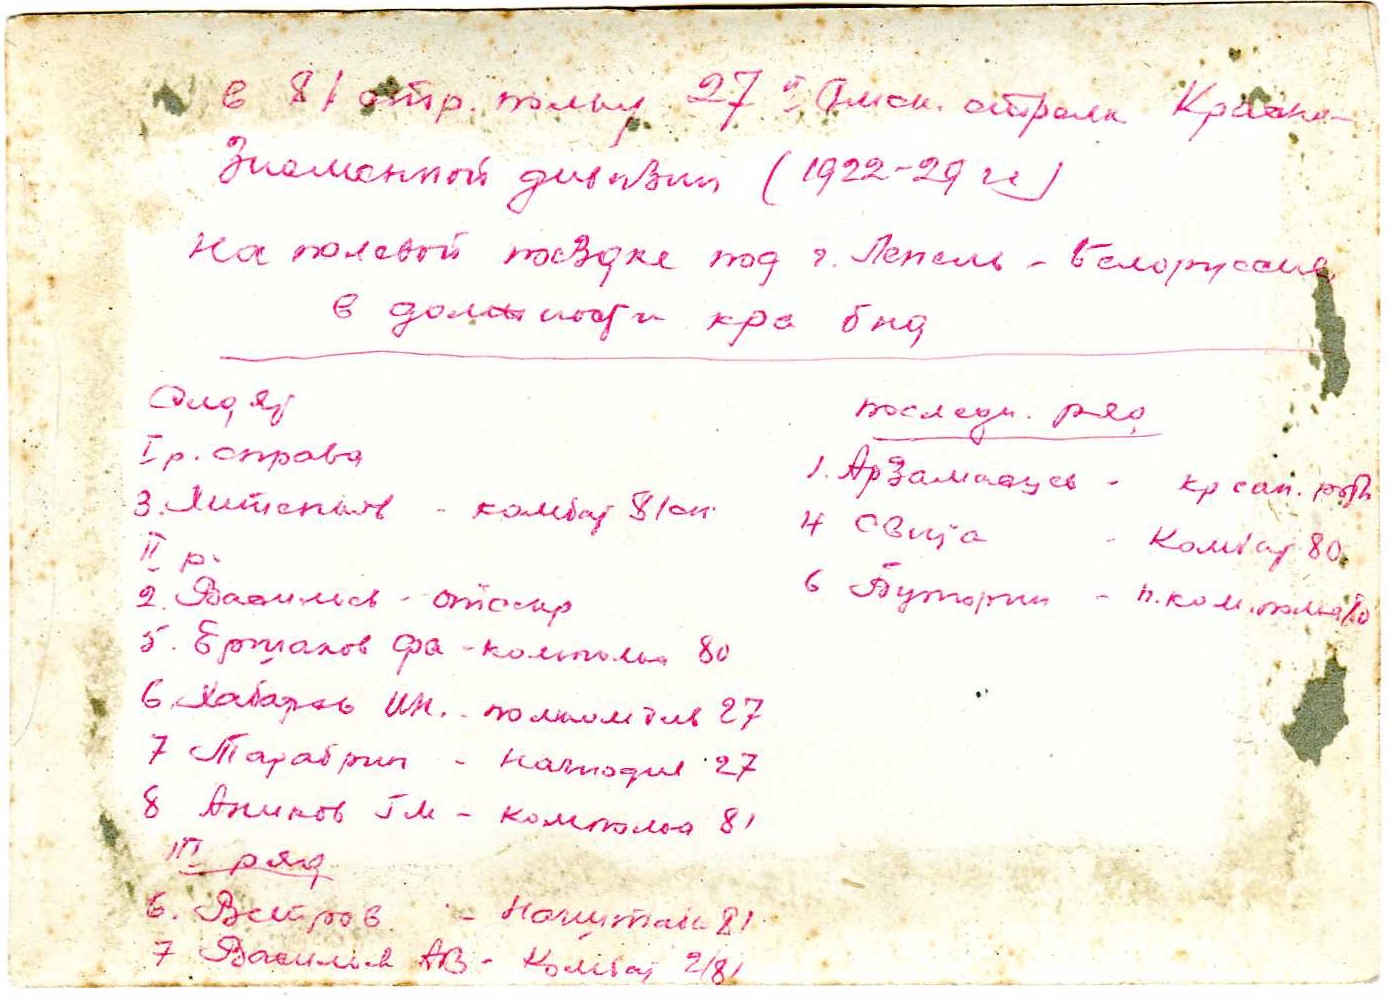 в 81 стр. полку 27й Омск. стрелк Красно-
Знаменной дивизии (1922-29 гг)
На полевой поездке под г. Лепель - Белоруссия
в должности
Сидят
I р. справа
3. - комбат 81 сп.
II р.
2. Васильев -
5. Ермаков ФА - компол­ка 80
6. Хабаров ИК. - 27
7 Тарабрин - Начподив 27
8 Аников ГМ - компол­ка 81
III ряд
6. Ветров - Начштаба 81
7 Васильев АВ - Комбат 2/81
последн. ряд
1. Арзамасцев - кр сап. роты
4 Свита - Комбат 80
6 Буторин - п. ком. полка 80